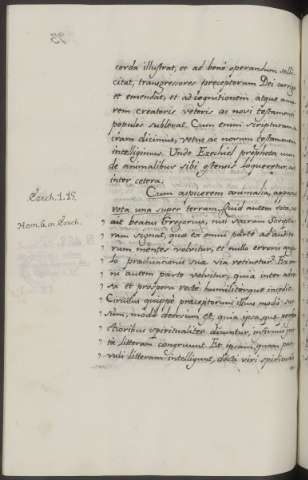 corda illustrat, et ad bene operandum solli
citat, transgressores praeceptorum Dei corrigit
et emendat, et ad cognitionem atque amo
rem creatoris veteris ac novi testamenti
populos sublevat. Cum enim scripturam
sacram dicimus, vetus ac novum testamentum
intelligimus. Unde Ezechiel propheta cum
de animalibus sibi ostensis loqueretur, ait
inter cetera.
Cum aspicerem animalia, apparuit
rota una super terram. Quid autem rota, ut
ait beatus Gregorius, nisi sacram Scriptu
ram signat, quae ex omni parte ad auditu
rum mentes volvitur, et nullo erroris angu
lo a praedicationis sua via retinetur? Ex om
ni autem parte volvitur, quia inter adver
sa et prospera recte humiliterque incedit.
Circulus quippe praeceptorum illius modo sur
sum, modo deorsum est, quia ipsa, quae perfe
ctioribus spiritualiter dicuntur, infirmis jux
ta litteram congruunt. Et ipsam, quam par
vuli litteram intelligunt, docti viri spiritualem
Ezech. 1. 15.
Hom. 6. in Ezech.